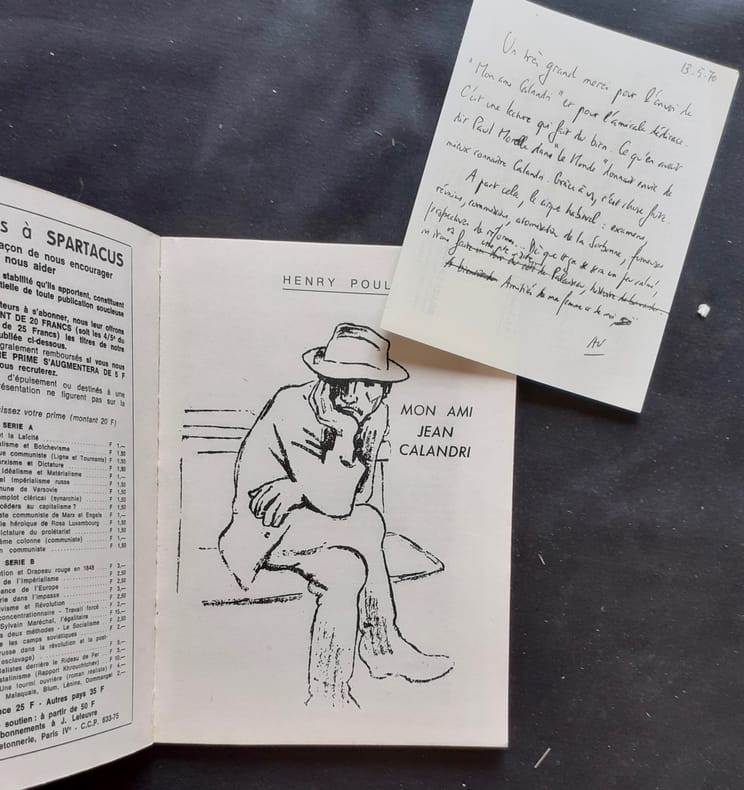 s à SPARTACUS
açon de nous encourager
nous aider
stabilité qu'ils apportent, constituent
tielle de toute publication soucieuse
teurs à s'abonner, nous leur offrons
NT DE 20 FRANCS (soit les 4/5e du
de 25 Francs) les titres de notre
ubliée ci-dessous.
galement remboursés si vous nous
E PRIME S'AUGMENTERA DE 5 F
ous recruterez.
d'épuisement ou destinés à une
résentation ne figurent pas sur la
issez votre prime (montant 20 F)
SERIE A
et la Laïcité
alisme et Bolchevisme
ue communiste (Ligne et Tournants)
arxisme et Dictature
Idéalisme et Matérialisme
el Impérialisme russe
mune de Varsovie
omplot clérical (synarchie)
céders au capitalisme ?
ste communiste de Marx et Engels
ie héroïque de Rosa Luxembourg
ictature du prolétariat
ème colonne (communiste)
n communiste
SERIE B
tion et Drapeau rouge en 1848
de l'Impérialisme
ance de l'Europe
rie dans l'impasse
tivisme et Révolution
concentrationnaire - Travail forcé
Sylvain Maréchal, l'égalitaire
s deux méthodes - Le Socialisme
e les camps soviétiques
russe dans la révolution et la post-
esclavage)
ialistes derrière le Rideau de Fer
stalinisme (Rapport Khrouchtchev)
Une fourmi ouvrière (roman réaliste)
Malaquais, Blum, Lénine, Dommanget
nce 25 F - Autres pays 35 F
soutien : à partir de 50 F
bonnements à J. Lefeuvre
etonnerie, Paris IVe - C.C.P. 633-75
HENRY POUL
MON AMI
JEAN
CALANDRI
13.5.70
Un très grand merci pour l'envoi de
"Mon ami Calandri" et pour l'amicale dédicace.
C'est une lecture qui fait du bien. Ce qu'en avait
dit Paul Morelle dans "Le Monde" donnait envie de
mieux connaître Calandri. Grâce à vs, c'est chose faite.
A part cela, le cirque habituel : examens
réunions, commissions, atomisation de la Sorbonne, fumeuses
perspectives de réforme... Dès que ça sera un peu calmé
Amitiés de ma femme et de moi
AV